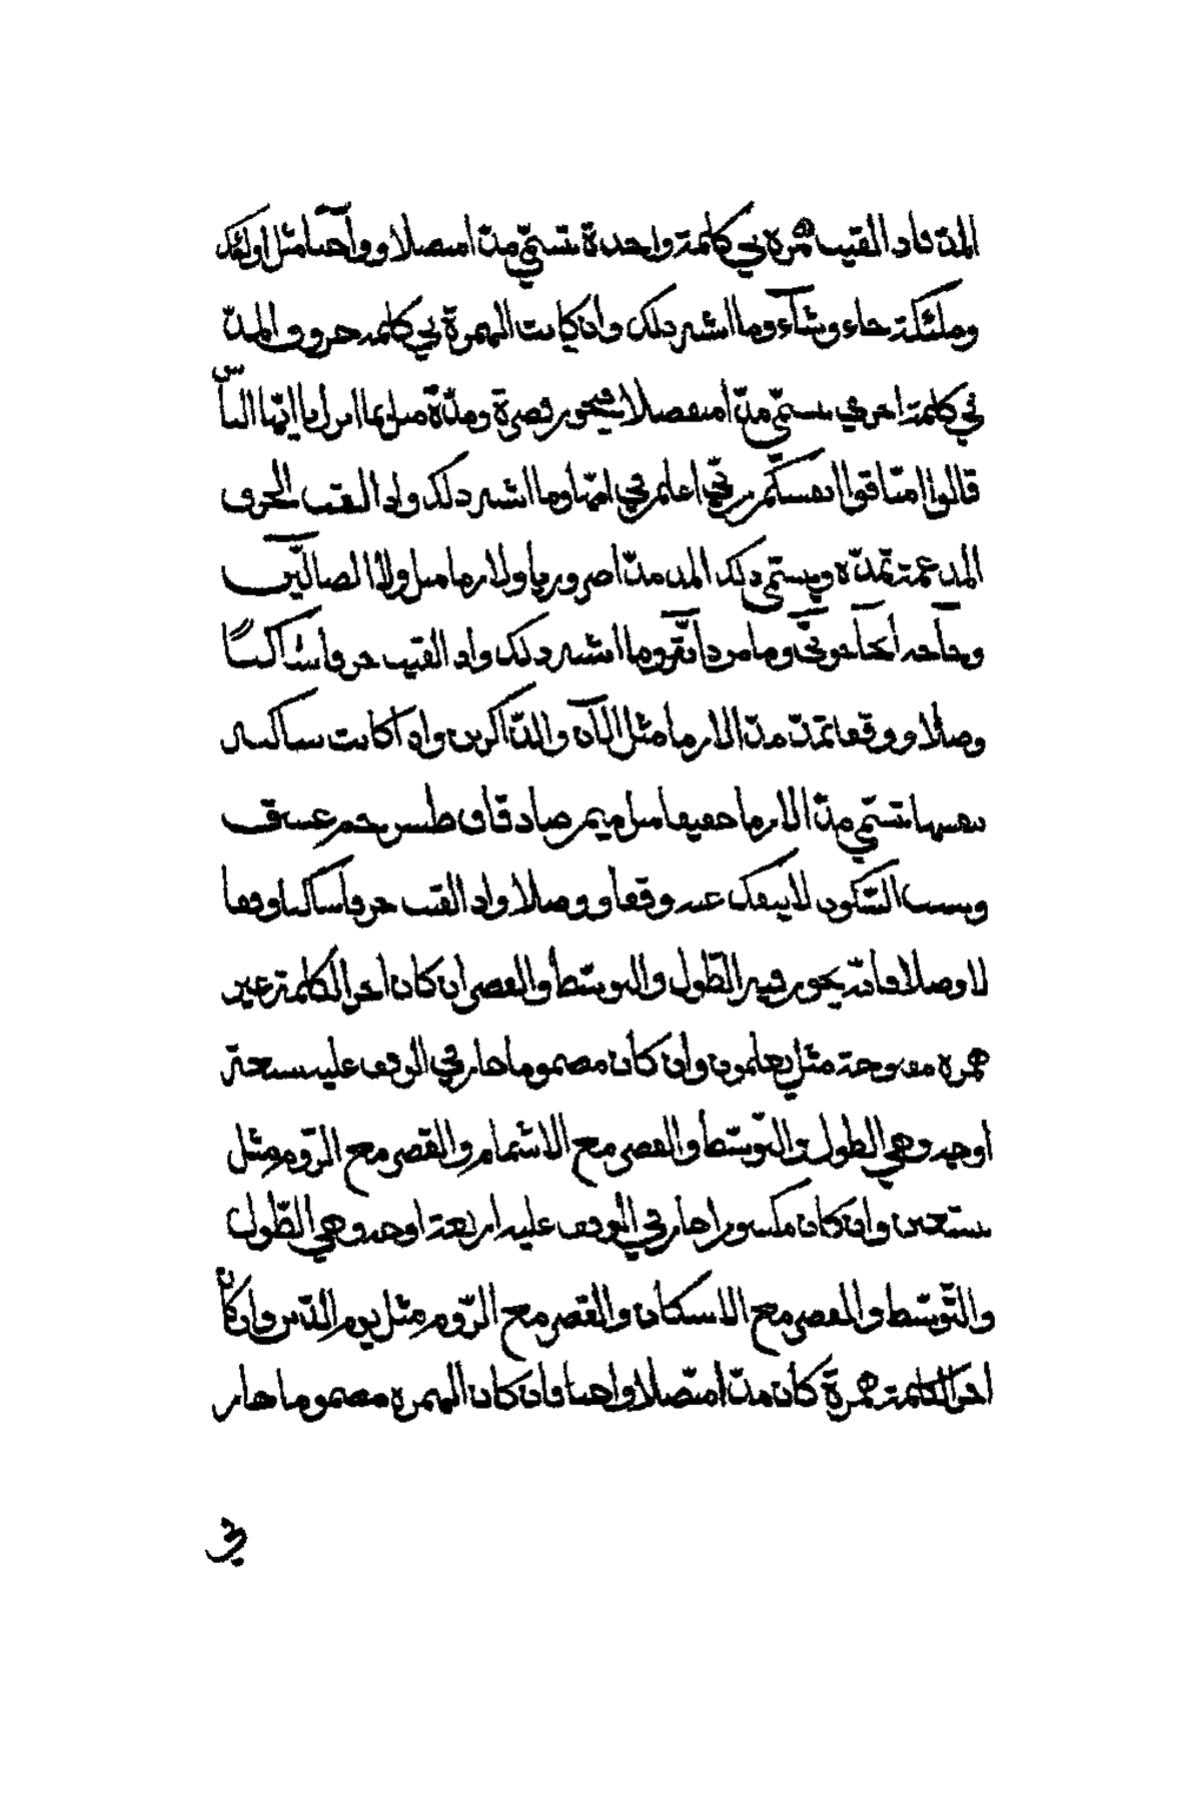 المد فاذا لقيت همزة في كلمة واحدة تسمّي مدّا متصلا وواجبا مثل اولئك
وملئكة جاء وشآء وما اشبه ذلك وان كانت الهمزة في كلمة وحروف المدّ
في كلمة اخري يسمّي مدّا منفصلا فيجوز قصرة ومدّة مثل بما انزل يا ايّها الناس
قالوا امنّا قوا انفسكم ربّي اعلم في امّها وما اشبه ذلك واذا لقيت الحرف
المدغمة تمدّه ويسمّي ذلك المد مدّا ضروريا ولازما مثل ولا الضالّين
وحآجه أتحآجونّي وما من دآبّة وما اشبه ذلك واذا لقيت حرفا ساكنًا
وصلا ووقفا تمدّ مدّ الازما مثل الآن والذّاكرين واذا كانت ساكنة
بنفسها تسمّي مدّ الازما خفيفا مثل ميم صاد قاف طس حم عسق
وسبب السّكون لا ينفك عنه وقفا ووصلا واذا لقيت حرفا ساكنا وقفا
لا وصلا فانّه يجوز فيه الطّول والتوسّط والقصر ان كان اخر الكلمة غير
همزة مفتوحة مثل يعلمون وان كان مضموما جاز في الوقف عليه سبعة
اوجه وهي الطول والتّوسّط والقصر مع الاشمام والقصر مع الرّوم مثل
نستعين وان كان مكسورا جاز في الوقف عليه اربعة اوجه وهي الطّول
والتّوسّط والقصر مع الاسكان والقصر مع الرّوم مثل يوم الدّين وان كان
اخر الكلمة همزة كان مدّا متّصلا واجبا وان كان الهمزة مضموما جاز
في